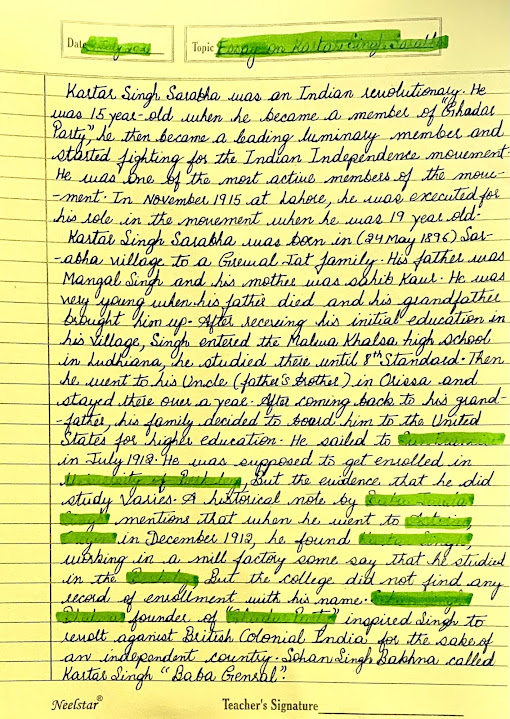 Date
Topic Essay on Kartar Singh Sarabha
Kartar Singh Sarabha was an Indian revolutionary. He
was 15 year-old when he became a member of "Ghadar
Party", he then became a leading luminary member and
started fighting for the Indian Independence movement.
He was one of the most active members of the move-
-ment. In November 1915 at Lahore, he was executed for
his role in the movement when he was 19 year old.
Kartar Singh Sarabha was born in (24 May 1896) Sar-
-abha village to a Grewal Jat family. His father was
Mangal Singh and his mother was Sahib Kaur. He was
very young when his father died and his grandfather
brought him up. After receiving his initial education in
his village, Singh entered the Malwa Khalsa high school
in Ludhiana, he studied there until 8th Standard. Then
he went to his Uncle (father's brother) in Orissa and
stayed there over a year. After coming back to his grand-
-father, his family decided to board him to the United
States for higher education. He sailed to
in July 1912. He was supposed to get enrolled in
University of, But the evidence that he did
study Varies. A historical note by
mentions that when he went to
in December 1912, he found
working in a mill factory some say that he studied
in the, But the college did not find any
record of enrollment with his name.
founder of inspired Singh to
revolt against British Colonial India for the sake of
an independent country. Sohan Singh Bakhna called
Kartar Singh "Baba Genral".
Neelstar® Teacher's Signature